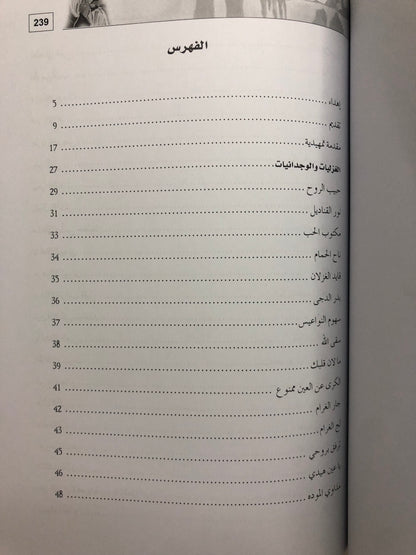 239
الفهرس
إهداء ........ 5
تقديم ........ 9
مقدمة تمهيدية ........ 17
الغزليات والوجدانيات ........ 27
حبيب الروح ........ 29
نور القناديل ........ 31
مكتوب الحب ........ 33
ناح الحمام ........ 34
قايد الغزلان ........ 35
بدر الدجى ........ 36
سهوم النواعيس ........ 37
سقى الله ........ 38
ما لان قلبك ........ 39
الكرى عن العين ممنوع ........ 41
جار الغرام ........ 42
لج الغرام ........ 43
ترفق بروحي ........ 45
يا عين هيدي ........ 46
مداوي الموده ........ 48